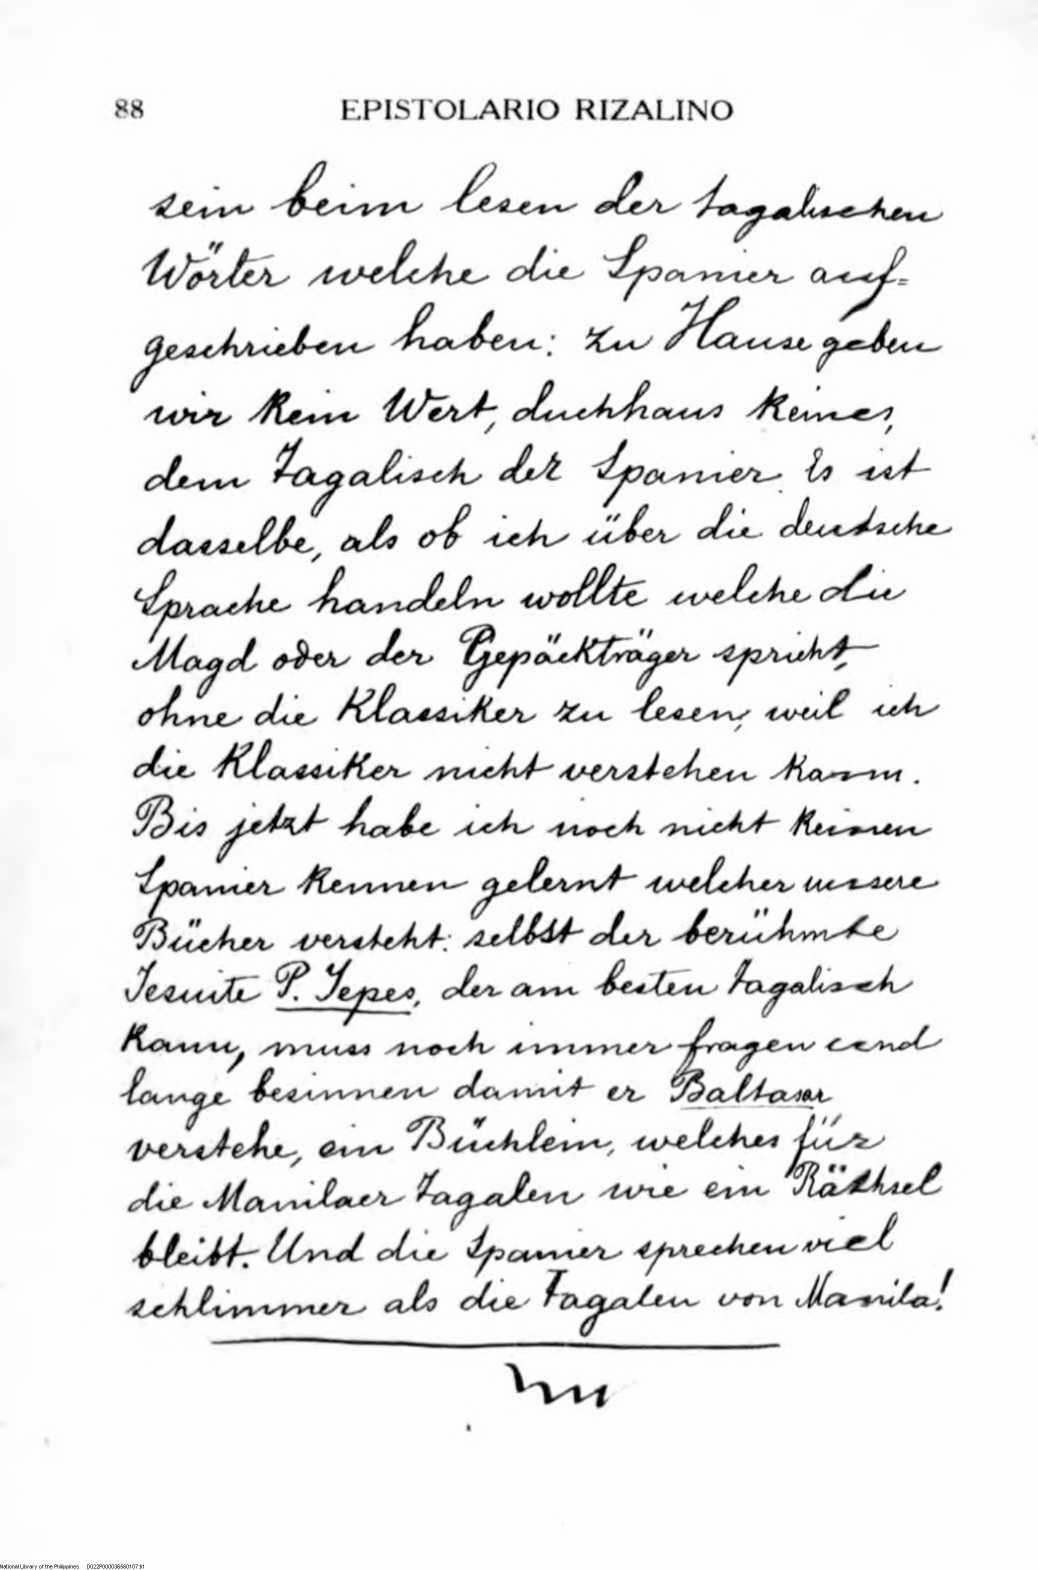 88 EPISTOLARIO RIZALINO
sein beim lesen der tagalischen
Wörter welche die Spanier auf=
geschrieben haben: zu Hause geben
wir kein Wert, duchhaus keines,
dem Tagalisch der Spanier. Es ist
dasselbe, als ob ich über die deutsche
Sprache handeln wollte welche die
Magd oder der Gepäckträger spricht,
ohne die Klassiker zu lesen, weil ich
die Klassiker nicht verstehen kann.
Bis jetzt habe ich noch nicht keinen
Spanier kennen gelernt welcher unsere
Bücher versteht: selbst der berühmte
Jesuite P. Yepes, der am besten tagalisch
kann, muss noch immer fragen und
lange besinnen damit er Baltasar
verstehe, ein Büchlein, welches für
die Manilaer Tagalen wie ein Räthsel
bleibt. Und die Spanier sprechen viel
schlimmer als die Tagalen von Manila!
National Library of the Philippines